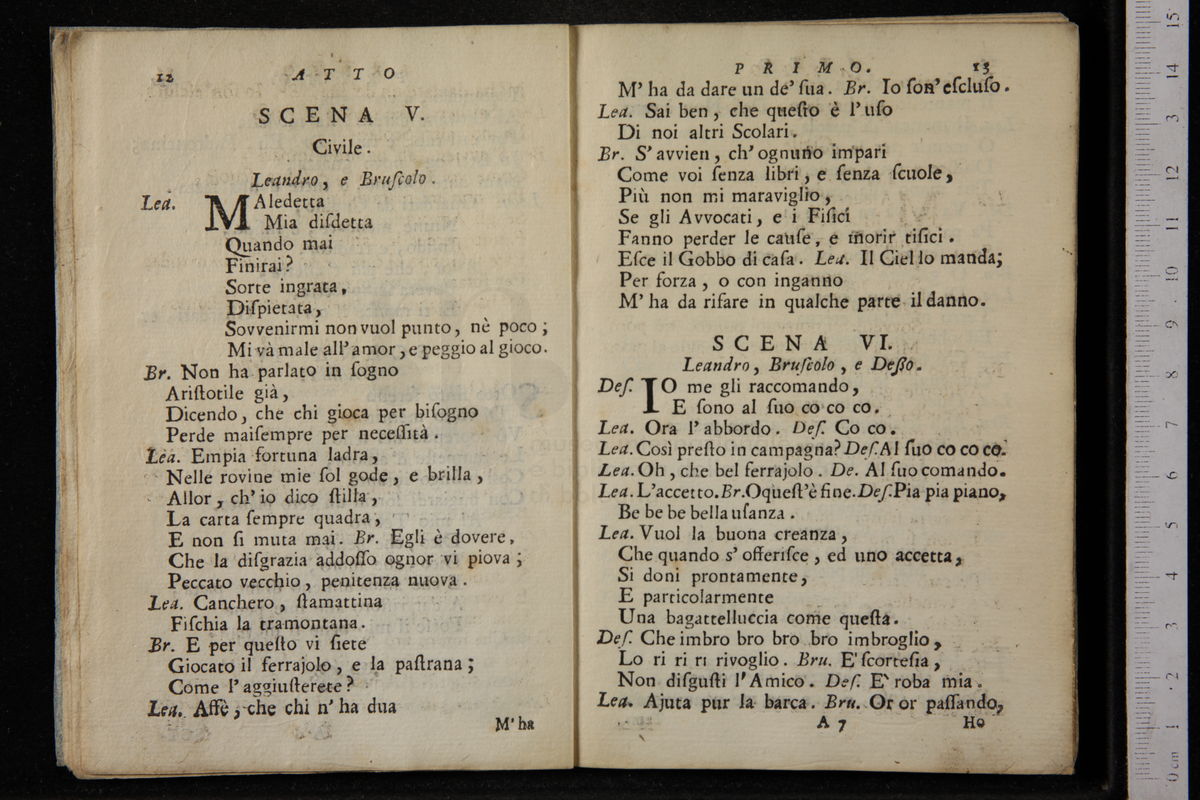 12 ATTO
SCENA V.
Civile.
Leandro, e Bruſcolo.
Lea. MAledetta
Mia diſdetta
Quando mai
Finirai?
Sorte ingrata,
Diſpietata,
Sovvenirmi non vuol punto, nè poco;
Mi và male all'amor, e peggio al gioco.
Br. Non ha parlato in ſogno
Ariſtotile già,
Dicendo, che chi gioca per biſogno
Perde maiſempre per neceſſità.
Lea. Empia fortuna ladra,
Nelle rovine mie ſol gode, e brilla,
Allor, ch'io dico ſtilla,
La carta ſempre quadra,
E non ſi muta mai. Br. Egli è dovere,
Che la diſgrazia addoſſo ognor vi piova;
Peccato vecchio, penitenza nuova.
Lea. Canchero, ſtamattina
Fiſchia la tramontana.
Br. E per queſto vi ſiete
Giocato il ferrajolo, e la paſtrana;
Come l'aggiuſterete?
Lea. Affè, che chi n'ha dua
M'ha
PRIMO. 13
M'ha da dare un de' ſua. Br. Io ſon' eſcluſo.
Lea. Sai ben, che queſto è l'uſo
Di noi altri Scolari.
Br. S'avvien, ch'ognuno impari
Come voi ſenza libri, e ſenza ſcuole,
Più non mi maraviglio,
Se gli Avvocati, e i Fiſici
Fanno perder le cauſe, e morir tiſici.
Eſce il Gobbo di caſa. Lea. Il Ciel lo manda;
Per forza, o con inganno
M'ha da rifare in qualche parte il danno.
SCENA VI.
Leandro, Bruſcolo, e Deſſo.
Deſ. IO me gli raccomando,
E ſono al ſuo co co co.
Lea. Ora l'abbordo. Deſ. Co co.
Lea. Così preſto in campagna? Deſ. Al ſuo co co co.
Lea. Oh, che bel ferrajolo. De. Al ſuo comando.
Lea. L'accetto. Br. O queſt'è fine. Deſ. Pia pia piano,
Be be be bella uſanza.
Lea. Vuol la buona creanza,
Che quando s'offeriſce, ed uno accetta,
Si doni prontamente,
E particolarmente
Una bagattelluccia come queſta.
Deſ. Che imbro bro bro bro imbroglio,
Lo ri ri ri rivoglio. Bru. E' ſcorteſia,
Non diſguſti l'Amico. Deſ. E' roba mia.
Lea. Ajuta pur la barca. Bru. Or or paſſando,
A 7 Ho
0 cm 1 2 3 4 5 6 7 8 9 10 11 12 13 14 15